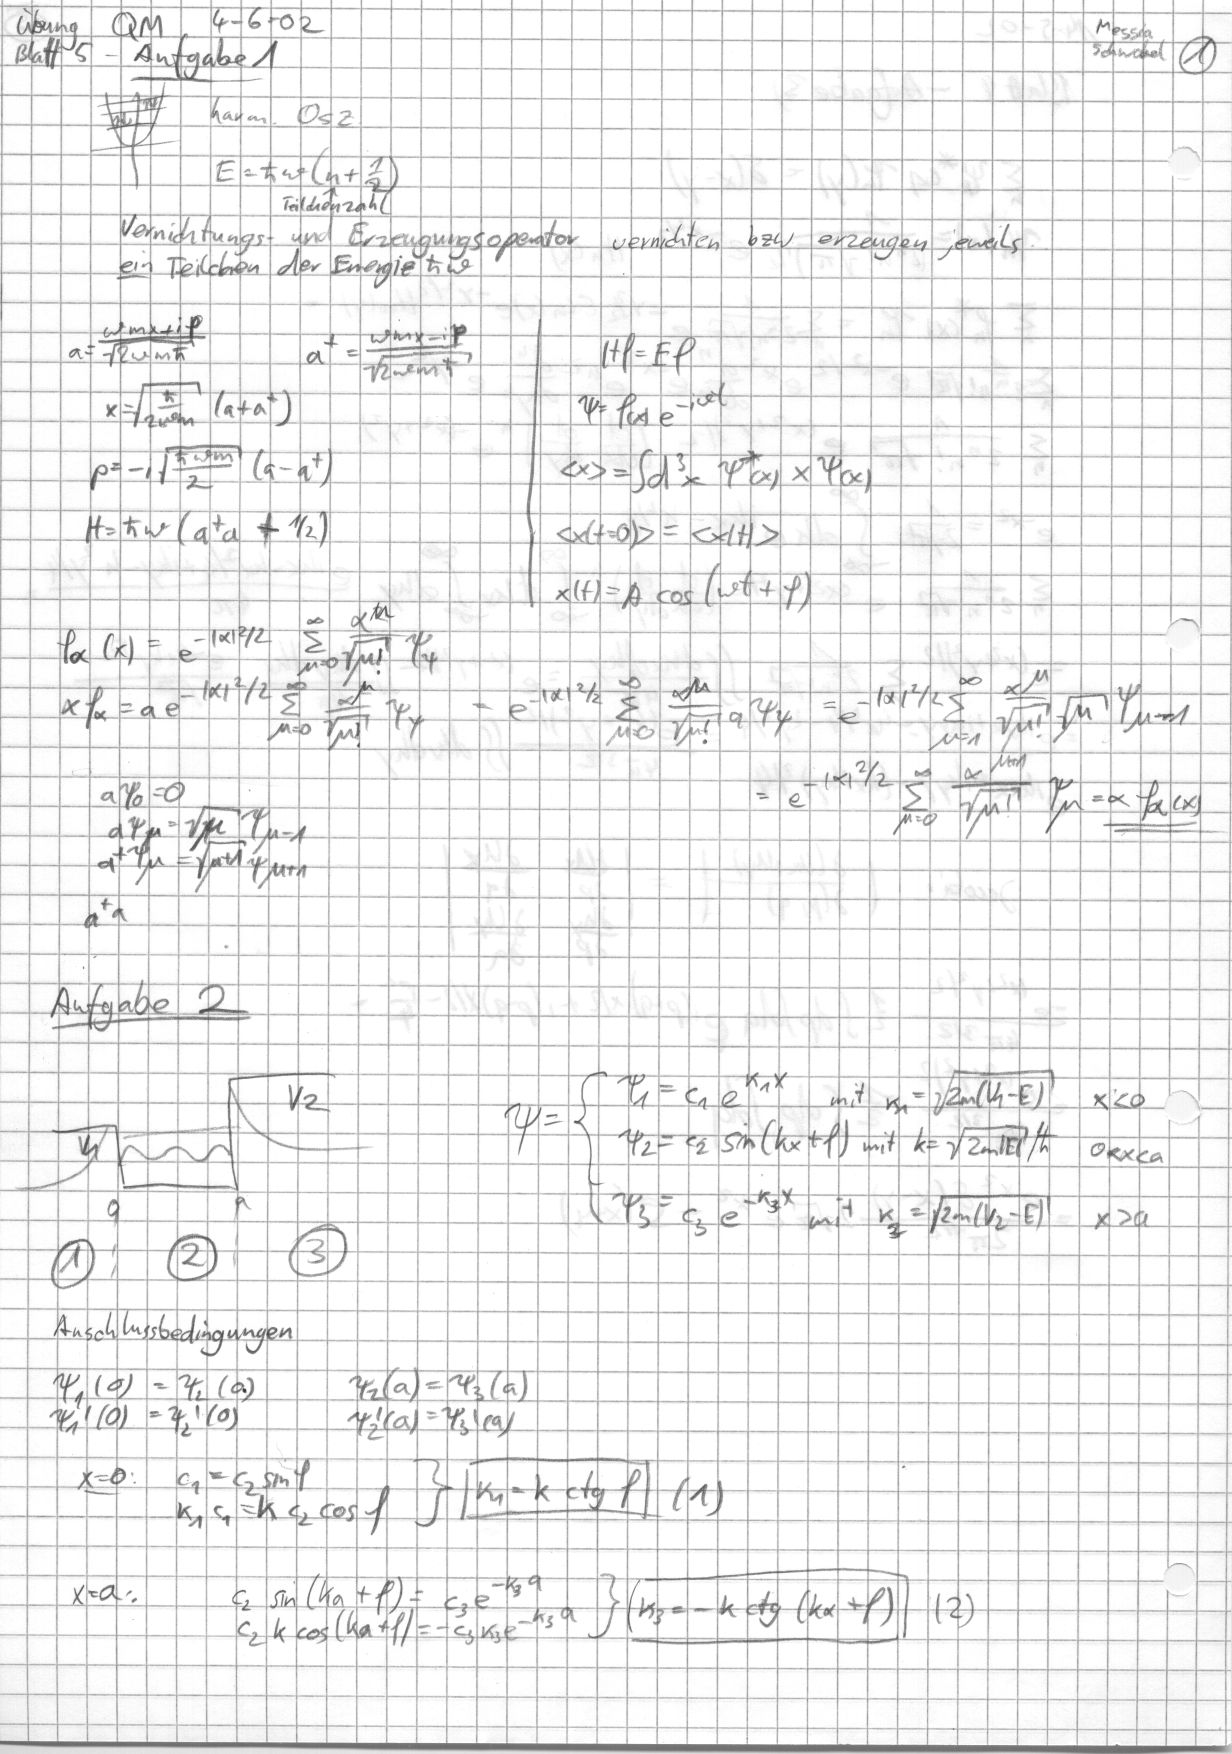 Übung QM 4-6-02
Blatt 5 - Aufgabe 1
Messia
Schwabel
1
harm. Osz
E = ħω(n + 1/2)
Teilchenzahl
Vernichtungs- und Erzeugungsoperator vernichten bzw erzeugen jeweils
ein Teilchen der Energie ħω
a = (ωmx + ip)/√(2ωmħ)    a⁺ = (ωmx - ip)/√(2ωmħ)
x = √(ħ/(2ωm)) (a + a⁺)
p = -i √(ħωm/2) (a - a⁺)
H = ħω (a⁺a + 1/2)
Hφ = Eφ
Ψ = φ(x) e^(-iωt)
<x> = ∫d³x Ψ*(x) x Ψ(x)
<x(t=0)> = <x(t)>
x(t) = A cos(ωt + φ)
φα(x) = e^(-|α|²/2) Σ_(μ=0)^∞ α^μ/√μ! Ψμ
α φα = a e^(-|α|²/2) Σ_(μ=0)^∞ α^μ/√μ! Ψμ = e^(-|α|²/2) Σ_(μ=0)^∞ α^μ/√μ! a Ψμ = e^(-|α|²/2) Σ_(μ=1)^∞ α^μ/√μ! √μ Ψ_(μ-1)
= e^(-|α|²/2) Σ_(μ=0)^∞ α^(μ+1)/√μ! Ψμ = α φα(x)
aΨ₀ = 0
aΨμ = √μ Ψ_(μ-1)
a⁺Ψμ = √(μ+1) Ψ_(μ+1)
a⁺a
Aufgabe 2
V1
V2
0 a
1 2 3
Ψ = {
Ψ₁ = c₁ e^(κ₁x) mit κ₁ = √(2m(V₁-E)) x<0
Ψ₂ = c₂ sin(kx+φ) mit k = √(2m|E|)/ħ 0<x<a
Ψ₃ = c₃ e^(-κ₃x) mit κ₃ = √(2m(V₂-E)) x>a
Anschlussbedingungen
Ψ₁(0) = Ψ₂(0)    Ψ₂(a) = Ψ₃(a)
Ψ₁'(0) = Ψ₂'(0)    Ψ₂'(a) = Ψ₃'(a)
x=0: c₁ = c₂ sin φ
κ₁ c₁ = k c₂ cos φ } κ₁ = k ctg φ (1)
x=a: c₂ sin(ka+φ) = c₃e^(-κ₃a)
c₂ k cos(ka+φ) = -c₃κ₃e^(-κ₃a) } κ₃ = -k ctg (ka+φ) (2)